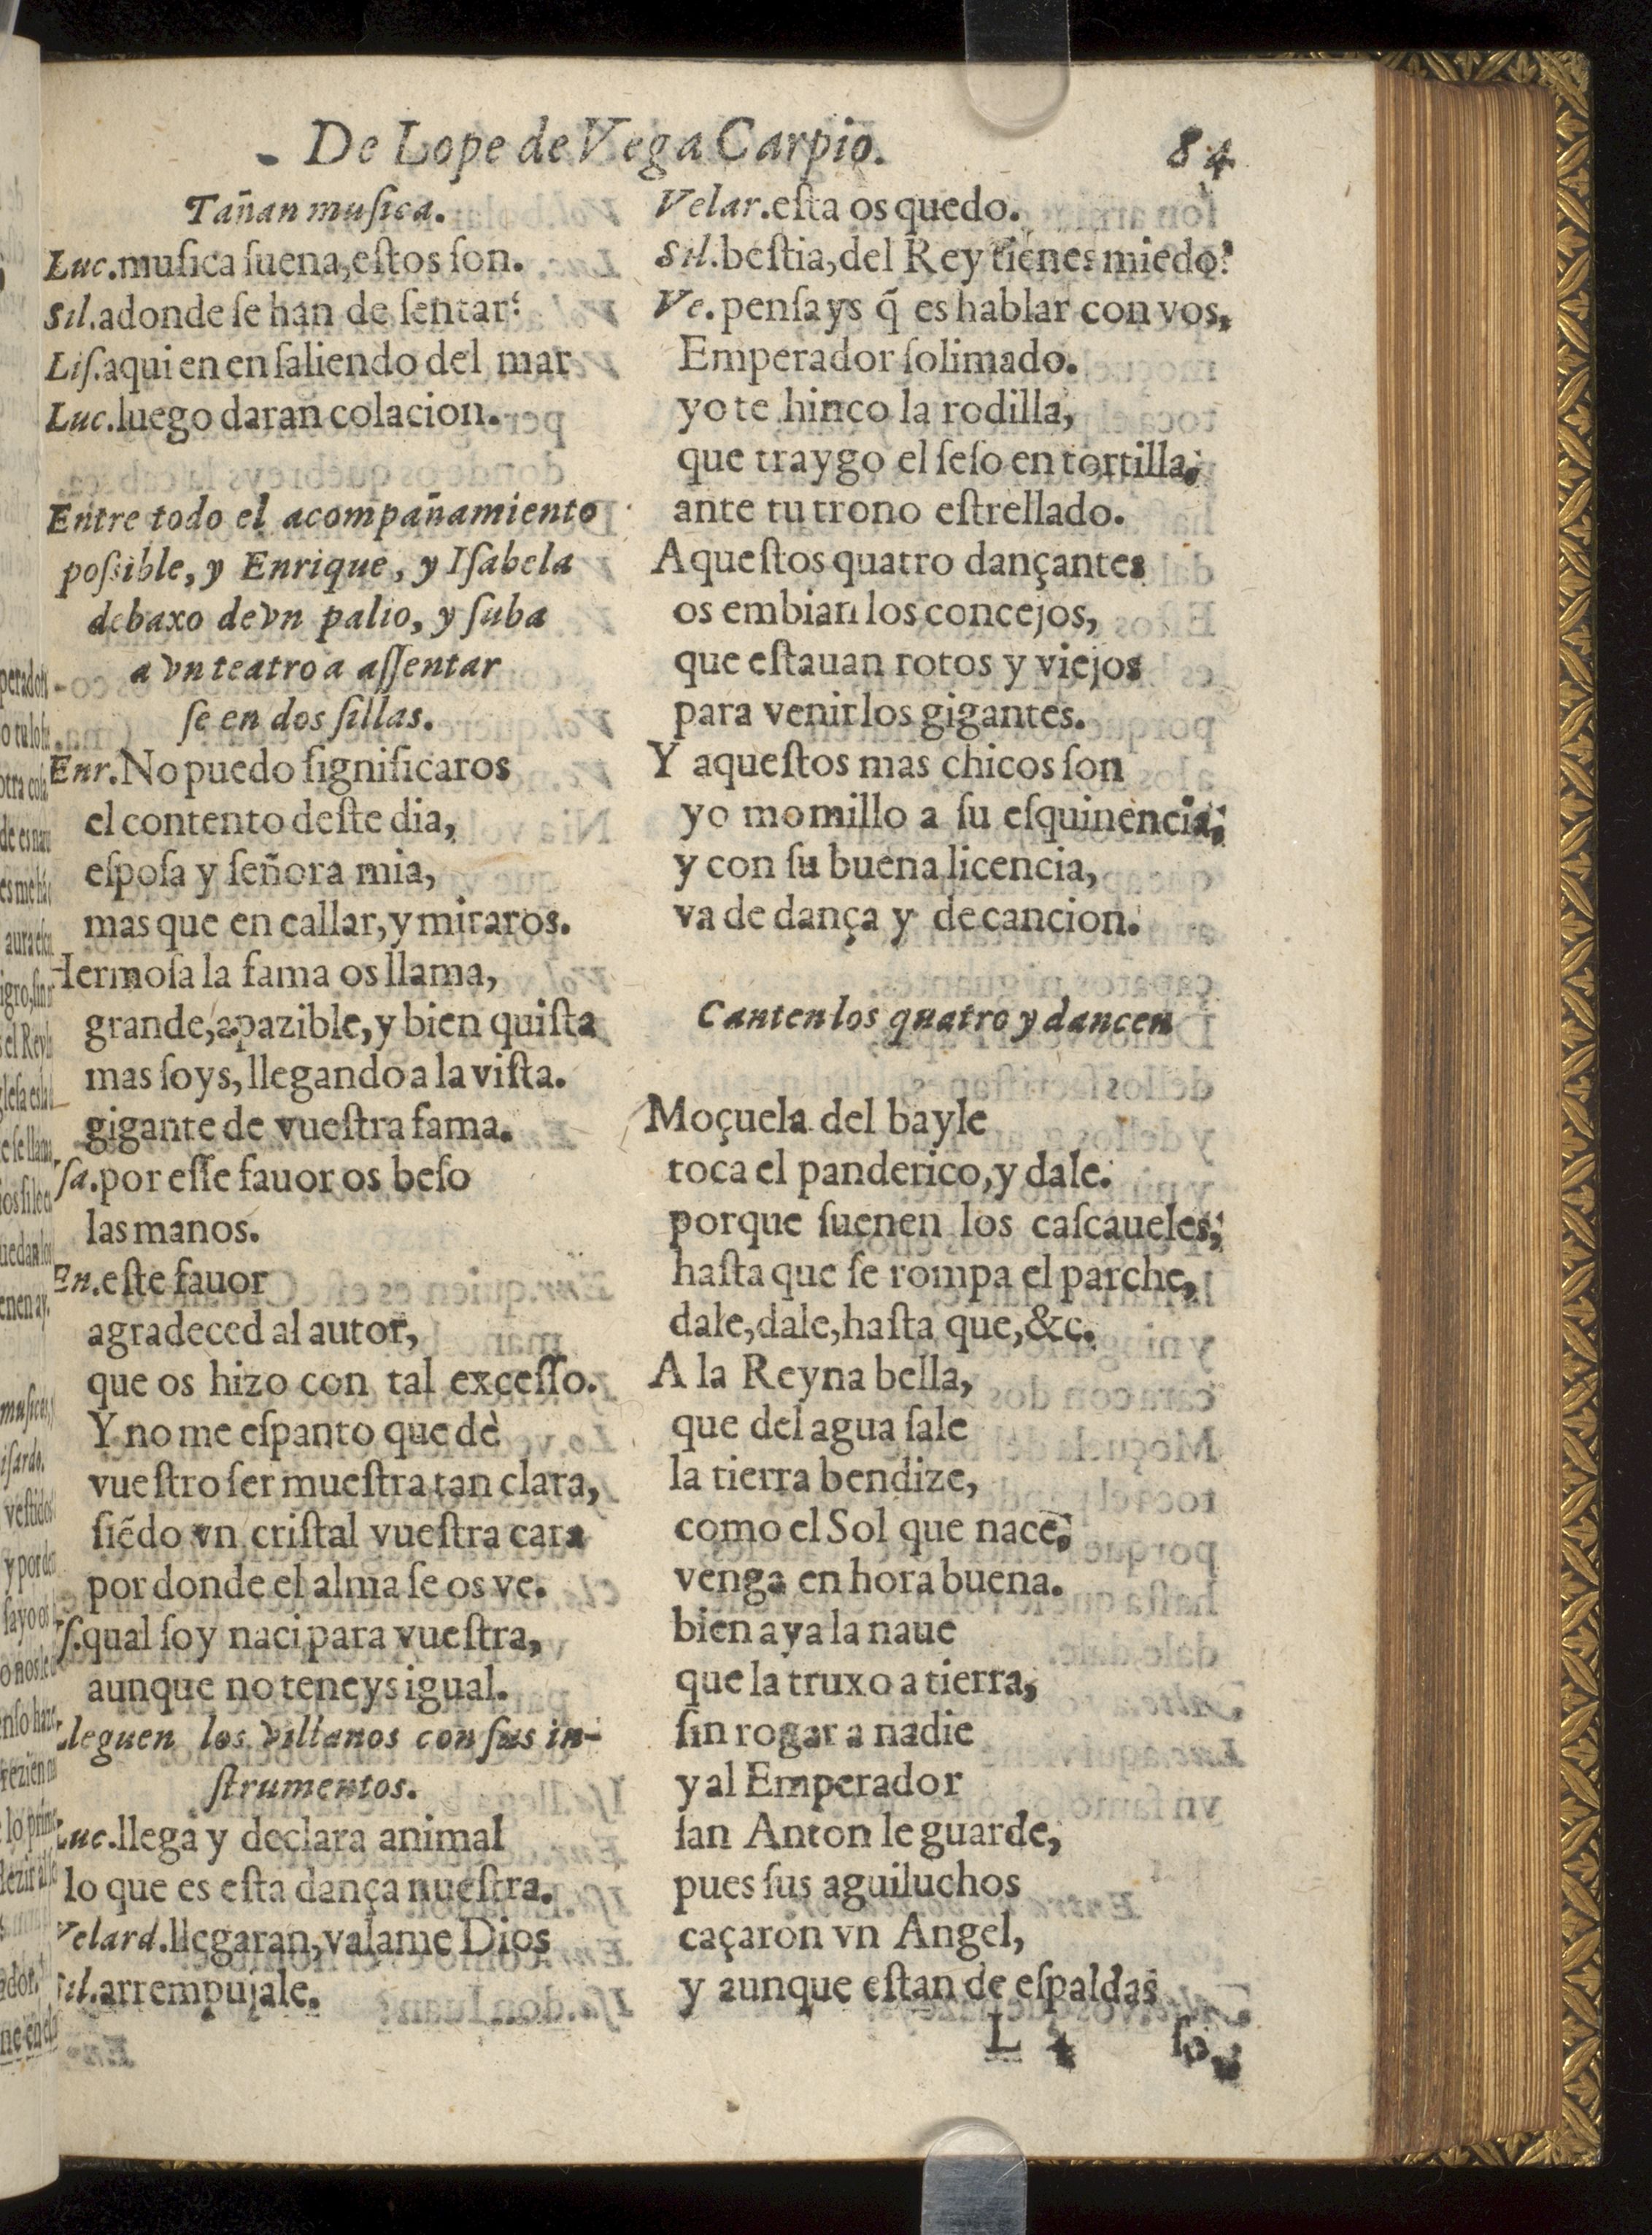 De Lope de Vega Carpio. 84
Tañan musica.
Luc.musica suena,estos son.
Sil.adonde se han de sentar?
Lis.aqui en en saliendo del mar
Luc.luego daran colacion.
Entre todo el acompañamiento
possible, y Enrique, y Isabela
debaxo de vn palio, y suba
a vn teatro a assentar
se en dos sillas.
Enr.No puedo significaros
el contento deste dia,
esposa y señora mia,
mas que en callar,y miraros.
Hermosa la fama os llama,
grande,apazible,y bien quista
mas soys,llegando a la vista.
gigante de vuestra fama.
sa.por esse fauor os beso
las manos.
En.este fauor
agradeced al autor,
que os hizo con tal excesso.
Y no me espanto que dè
vuestro ser muestra tan clara,
siẽdo vn cristal vuestra cara
por donde el alma se os ve.
s.qual soy naci para vuestra,
aunque no teneys igual.
leguen los villanos con sus in-
strumentos.
Luc.llega y declara animal
lo que es esta dança nuestra.
Velard.llegaran,valame Dios
Sil.arrempujale.
Velar.esta os quedo.
Sil.bestia,del Rey tienes miedo?
Ve.pensays q̃ es hablar con vos,
Emperador solimado.
yo te hinco la rodilla,
que traygo el seso en tortilla,
ante tu trono estrellado.
Aquestos quatro dançantes
os embian los concejos,
que estauan rotos y viejos
para venir los gigantes.
Y aquestos mas chicos son
yo momillo a su esquinencia,
y con su buena licencia,
va de dança y de cancion.
Canten los quatro y dancen
Moçuela del bayle
toca el panderico,y dale.
porque suenen los cascaueles,
hasta que se rompa el parche,
dale,dale,hasta que,&c.
A la Reyna bella,
que del agua sale
la tierra bendize,
como el Sol que nace,
venga en hora buena.
bien aya la naue
que la truxo a tierra,
sin rogar a nadie
y al Emperador
san Anton le guarde,
pues sus aguiluchos
caçaron vn Angel,
y aunque estan de espaldas
L 4 so